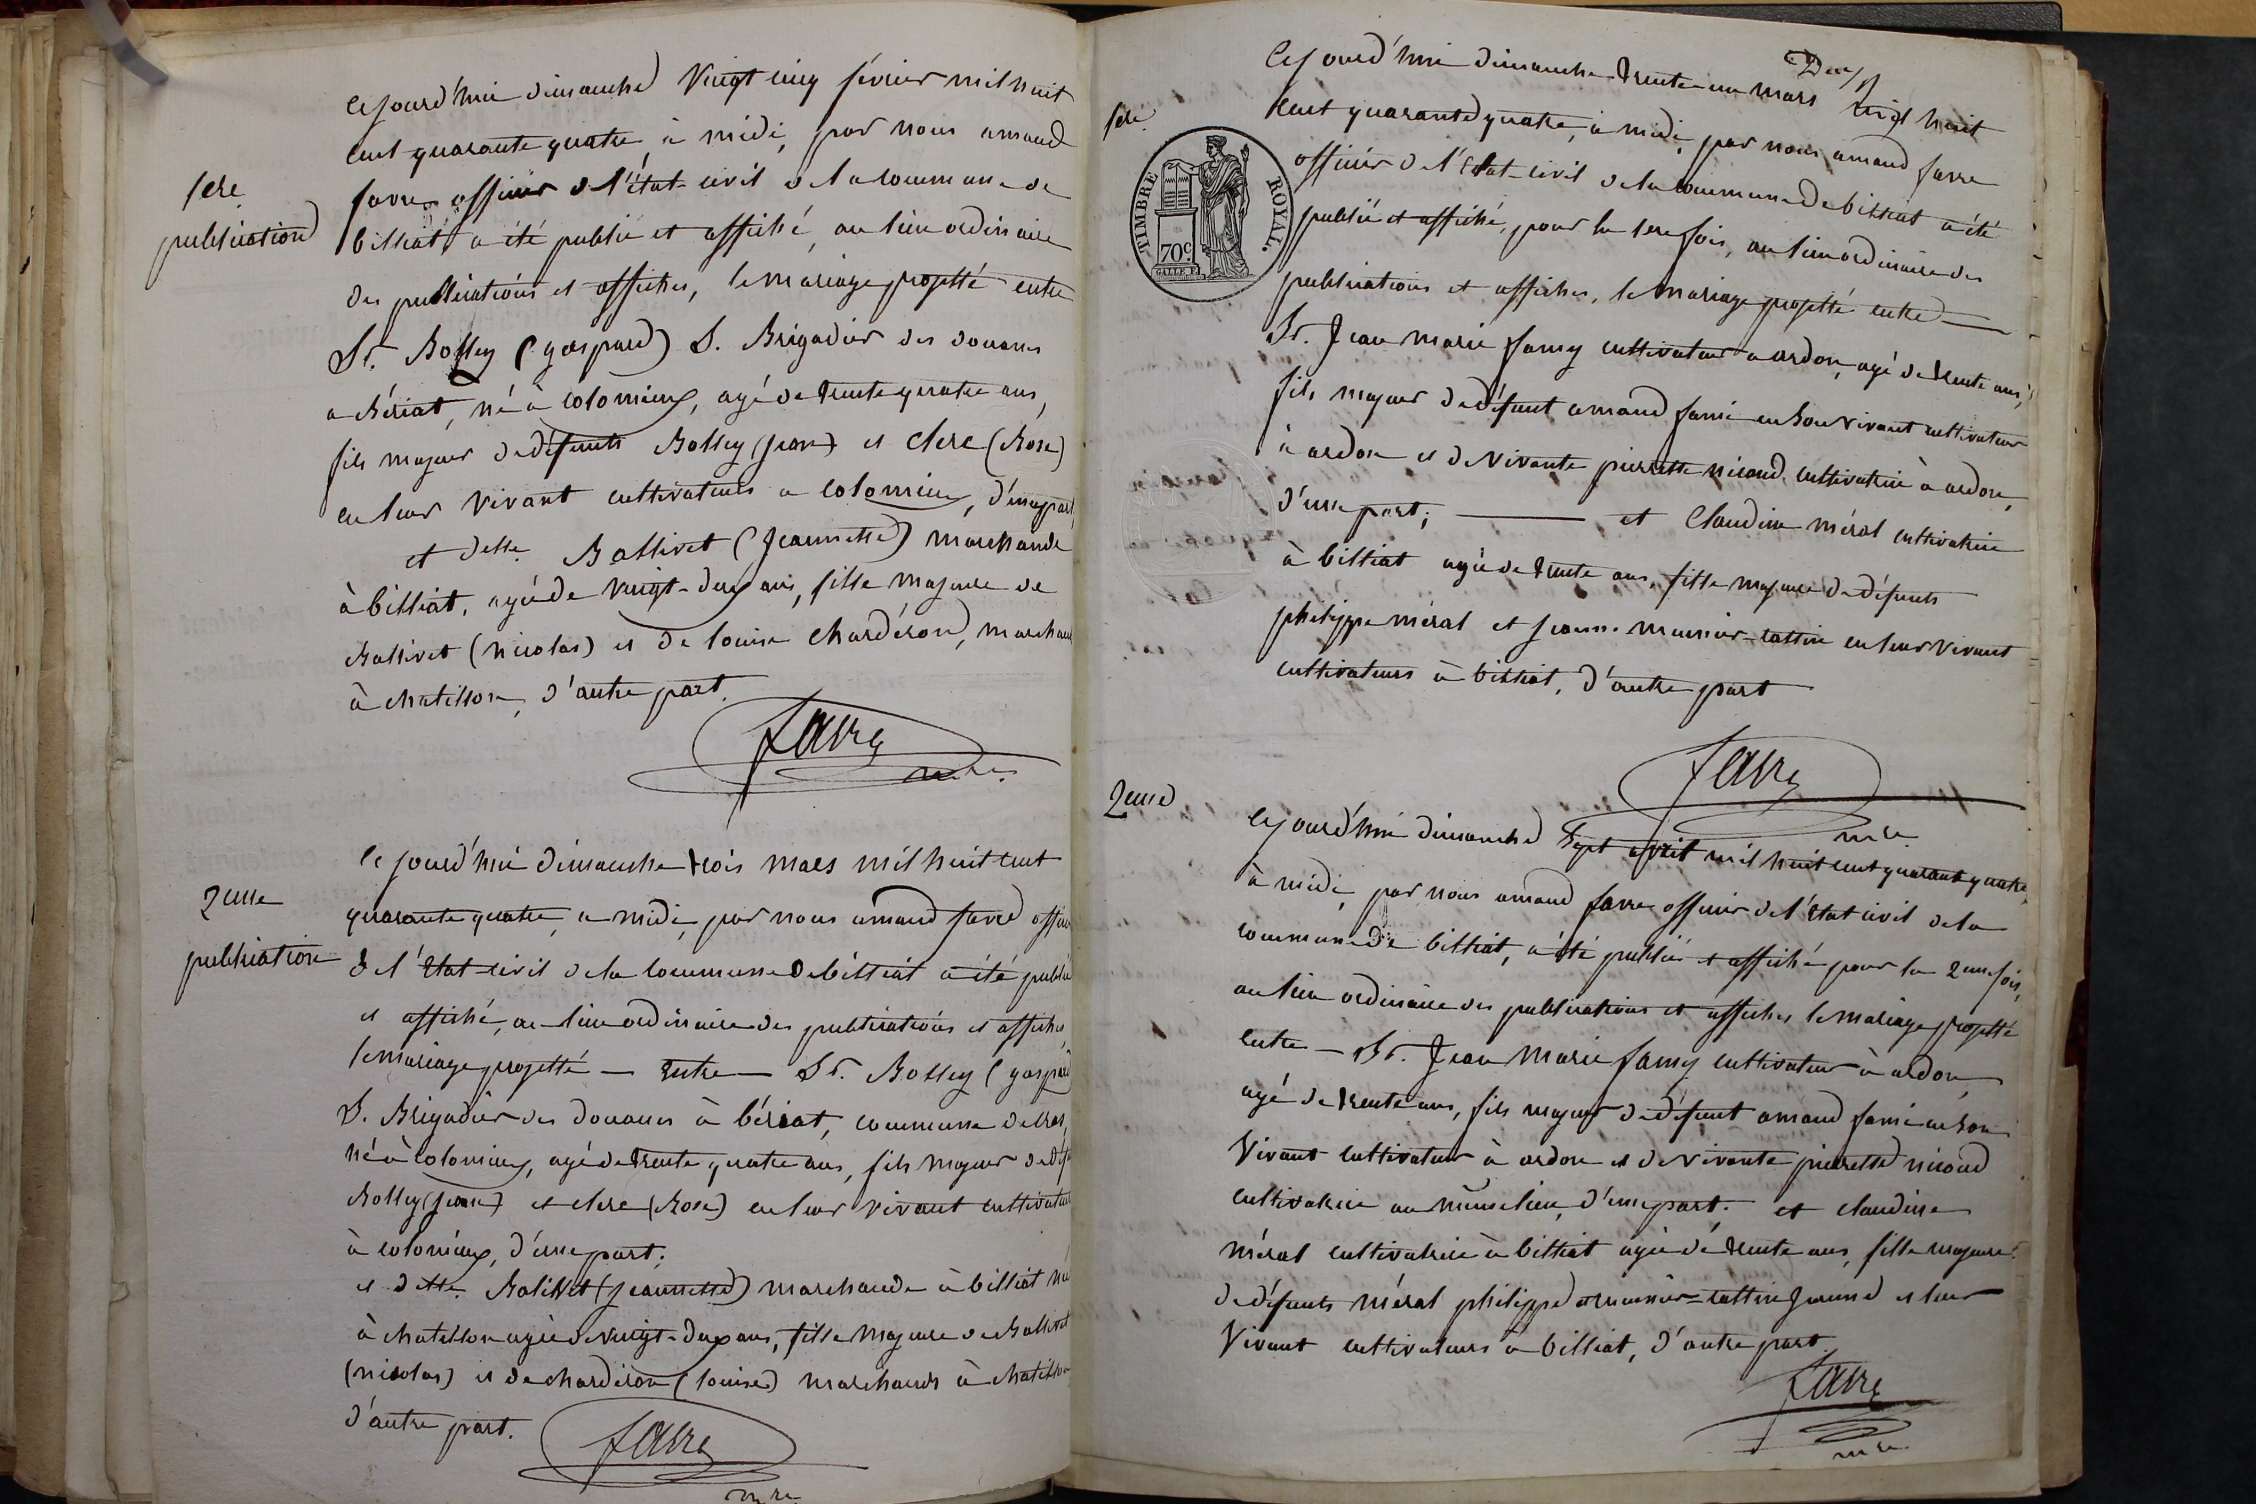 1ere
publication
Cejourd'hui dimanche vingt cinq février mil huit
cent quarante quatre à midi, par nous amand
favre officier de l'état-civil de la commune de
billiat, a été publié et affiché, au lieu ordinaire
des publications et affiches, le mariage projetté entre
Sr. Bolley (gaspard) S. Brigadier des douanes
a Bériat, né à colomieux, agé de trente quatre ans,
fils majeur de défunts Bolley (jean) et Clerc (Rose)
en leur vivant cultivateurs a colomieux, d'une part,
et delle. Ballivet (Jeannette) marchande
à billiat, agée de vingt-deux ans, fille majeure de
Ballivet (nicolas) et de louise Chardéron, marchands
à chatillon, d'autre part.
favre
mre
2eme
publication
Cejourd'hui dimanche trois mars mil huit cent
quarante quatre, a midi, par nous amand favre officier
de l'état-civil de la commune de billiat a été publié
et affiché, au lieu ordinaire des publications et affiches,
le mariage projetté — entre — Sr. Bolley (gaspard)
S. Brigadier des douanes à bériat, commune de
né à colomieux, agé de trente quatre ans, fils majeur de
Bolley (jean) et clerc (Rose) en leur vivant cultivateurs
à colomieux, d'une part;
et delle. Balivet (jeannette) marchande à billiat née
à chatillon agée de vingt-deux ans, fille majeure de Ballivet
(nicolas) et de chardéron (louise) marchands à chatillon
d'autre part.
favre
mre
1ere
TIMBRE ROYAL.
70c.
Cejourd'hui dimanche trente-un mars mil huit
cent quarante quatre, à midi, par nous amand favre
officier de l'état-civil de la commune de billiat a été
publié et affiché, pour la 1ere fois, au lieu ordinaire des
publications et affiches, le mariage projetté entre —
Sr. Jean marie famy cultivateur a ardon, agé de trente ans,
fils majeur de défunt amand famé en son vivant cultivateur
à ardon et de vivante pierrette nicoud cultivatrice à ardon,
d'une part; — et Claudine méral cultivatrice
à billiat agée de trente ans, fille majeure de défunts
philippe méral et jeanne musnier-lattin en leur vivant
cultivateurs à billiat, d'autre part
favre
mre
2eme
Cejourd'hui dimanche sept avril mil huit cent quarante quatre,
à midi, par nous amand favre officier de l'état civil de la
commune de billiat, a été publié et affiché pour la 2eme fois,
au lieu ordinaire des publications et affiches le mariage projetté
entre — Sr. Jean Marie famy cultivateur à ardon,
agé de trente ans, fils majeur de défunt amand famé en son
Vivant cultivateur à ardon et de vivante pierrette nicoud
cultivatrice au même lieu, d'une part; et claudine
méral cultivatrice à billiat agée de trente ans, fille majeure
de défunts méral philippe et musnier-lattin jeanne et leur
Vivant cultivateurs à billiat, d'autre part
favre
mre